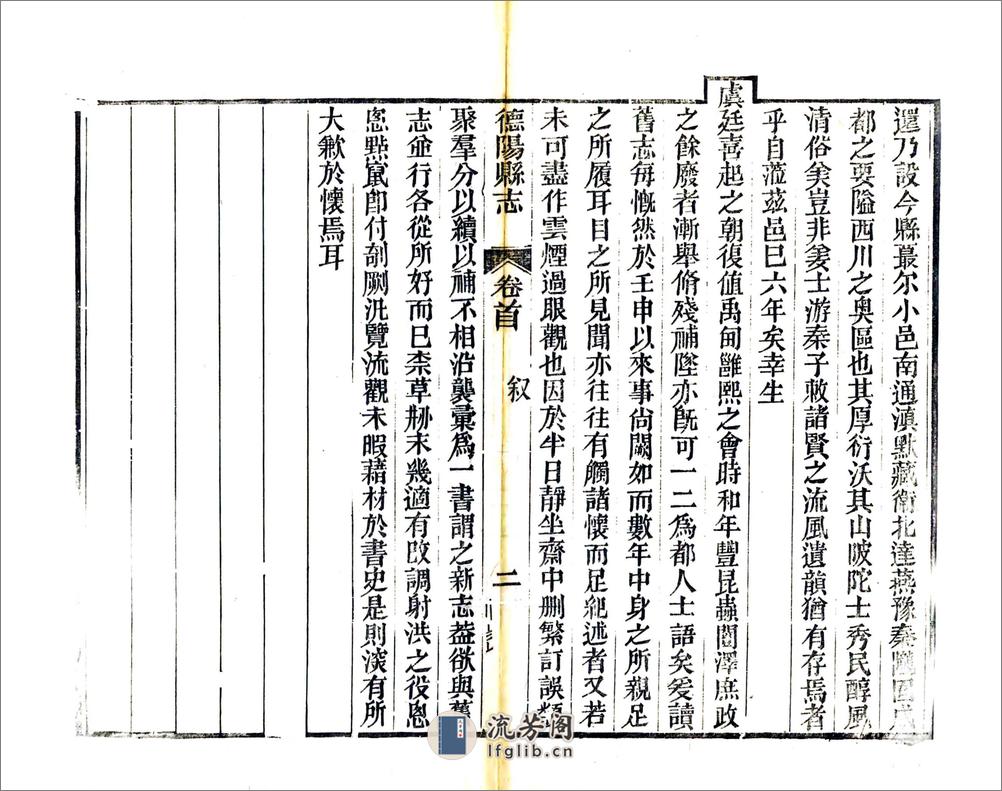 還乃設今縣蕞尔小邑南通滇黔藏衛北達燕豫秦隴固成
都之要隘西川之奥區也其厚衍沃其山陂陀士秀民醇風
清俗矣豈非姜士游秦子敕諸賢之流風遺韻猶有存焉者
乎自蒞兹邑巳六年矣幸生
虞廷喜起之朝復値禹甸雝熙之會時和年豐昆蟲闓澤庶政
之餘廢者漸舉脩殘補墜亦旣可一二爲都人士語矣爰讀
舊志每慨然於壬申以來事尙闕如而數年中身之所親足
之所履耳目之所見聞亦往往有觸諸懷而足紀述者又若
未可盡作雲煙過眼觀也因於半日靜坐齋中删繁訂誤類
德陽縣志 卷首 叙 二
聚羣分以續以補不相沿襲彙爲一書謂之新志葢欲與舊
志並行各從所好而巳柰草刱未幾適有改調射洪之役恖
恖㸃竄卽付剞劂汎覽流觀未暇藉材於書史是則滾有所
大歉於懷焉耳
流芳阁
lfglib.cn